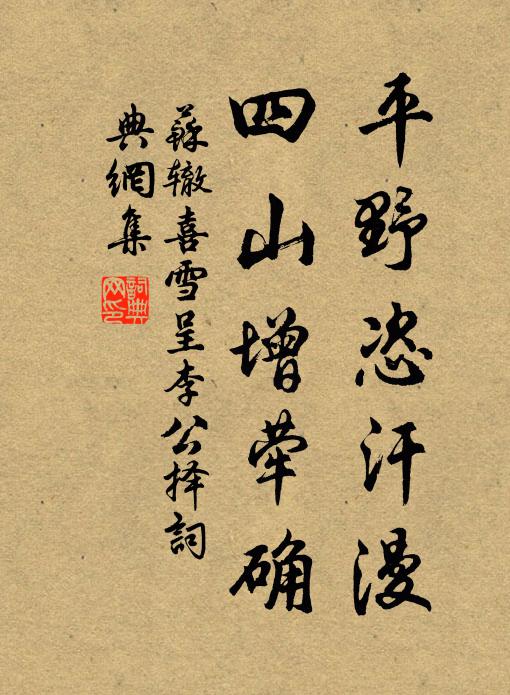 平野恣汗漫
四山增荦确
蘇辙喜雪呈李公择詞
典網集
詞典
网印